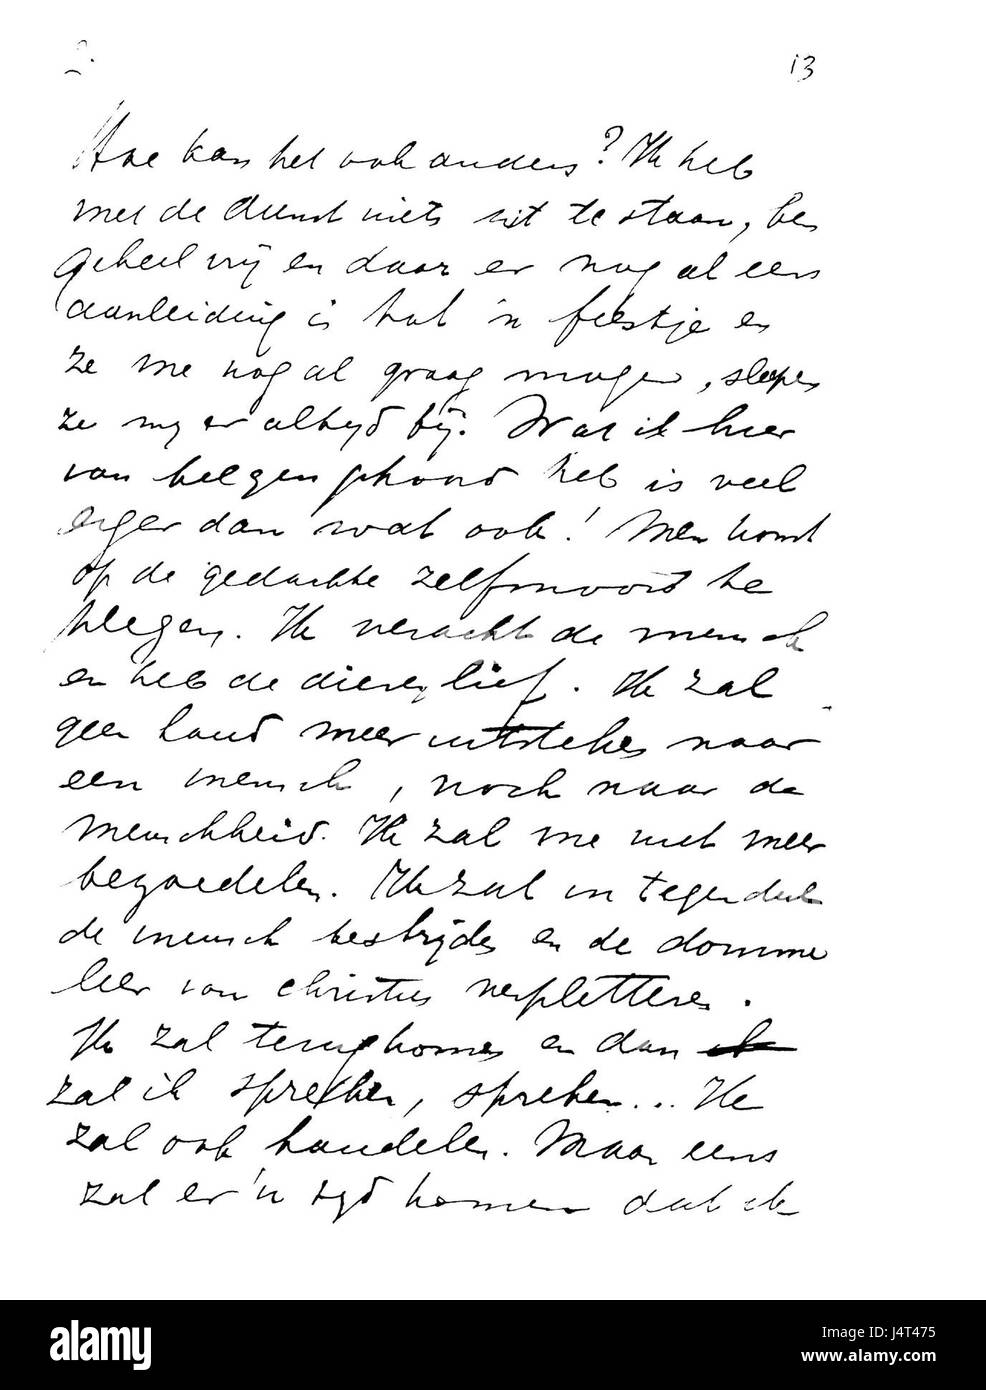 2. 13
Hoe kan het ook anders? Ik heb
met de dienst niets uit te staan, ben
geheel vrij en daar er nog al eens
aanleiding is tot 'n feestje en
ze me nog al graag mogen, slepen
ze my er altyd bij. Wat ik hier
van het gehoord heb is veel
erger dan wat ook! Men komt
op de gedachte zelfmoord te
plegen. Ik veracht de mensch
en heb de dieren lief. Ik zal
geen hand meer uitsteken naar
een mensch, noch naar de
menschheid. Ik zal me niet meer
bezoedelen. Ik zal in tegendeel
de mensch bestrijden en de domme
leer van christus verpletteren.
Ik zal terugkomen en dan ik
zal ik spreken, spreken... Ik
zal ook handelen. Maar eens
zal er 'n tyd komen dat ik
alamy
Image ID: J4T475
www.alamy.com